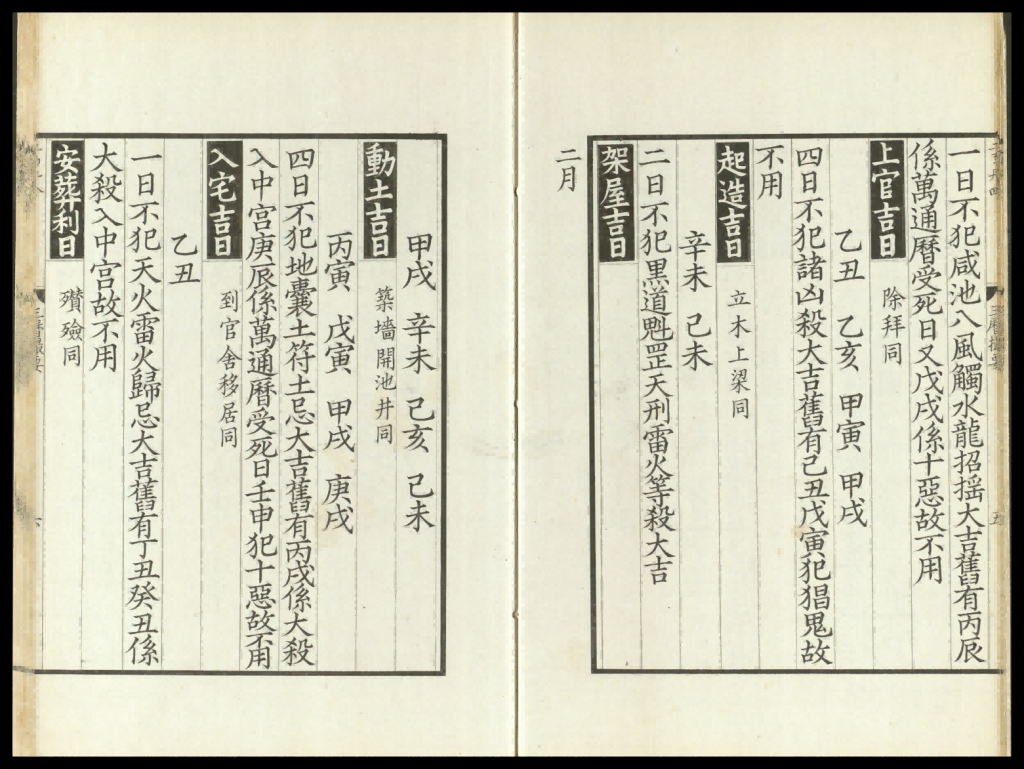 一日不犯咸池八風觸水龍招搖大吉舊有丙辰
係萬通曆受死日又戊戌係十惡故不用
上官吉日 除拜同
乙丑 乙亥 甲寅 甲戌
四日不犯諸凶殺大吉舊有己丑戊寅犯猖鬼故
不用
起造吉日 立木上梁同
辛未 己未
二日不犯黑道魁罡天刑雷火等殺大吉
架屋吉日
二月
甲戌 辛未 己亥 己未
動土吉日 築墻開池井同
丙寅 戊寅 甲戌 庚戌
四日不犯地囊土符土忌大吉舊有丙戌係大殺
入中宮庚辰係萬通曆受死日壬申犯十惡故不用
入宅吉日 到官舍移居同
乙丑
一日不犯天火雷火歸忌大吉舊有丁丑癸丑係
大殺入中宮故不用
安葬利日 殯殮同